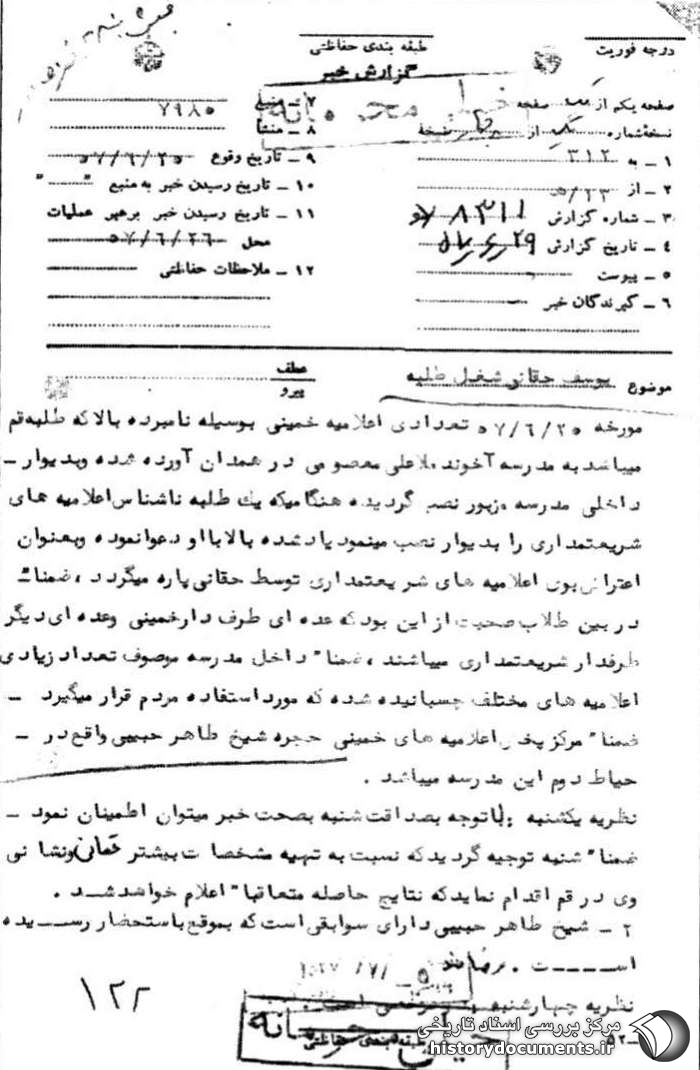 درجه فوریت
طبقه بندی حفاظتی
گزارش خبر
صفحه یکم از یک صفحه
نسخه شماره یک از نسخه
۱ ـ به ۳۱۲
۲ ـ از
۳ ـ شماره گزارش ۸۳۱۱
۴ ـ تاریخ گزارش ۵۷/۶/۲۹
۵ ـ پیوست
۶ ـ گیرندگان خبر
۷ ـ منبع ۷۹۸۵
۸ ـ منشأ
۹ ـ تاریخ وقوع ۵۷/۶/۲۵
۱۰ ـ تاریخ رسیدن خبر به منبع " "
۱۱ ـ تاریخ رسیدن خبر برهبر عملیات
محل ۵۷/۶/۲۶
۱۲ ـ ملاحظات حفاظتی
خیلی محرمانه
موضوع یوسف حقانی شغل طلبه
عطف
پیرو
مورخه ۵۷/۶/۲۵ تعدادی اعلامیه خمینی بوسیله نامبرده بالا که طلبه قم
میباشد به مدرسه آخوند ملاعلی معصومی در همدان آورده شده وبدیوار ـ
داخلی مدرسه مزبور نصب گردیده هنگامیکه یك طلبه ناشناس اعلامیه های
شریعتمداری را بدیوار نصب مینمود یاد شده بالا با او دعوا نموده وبعنوان
اعتراض بوی اعلامیه های شریعتمداری توسط حقانی پاره میگردد ، ضمنا"
در بین طلاب صحبت از این بود که عده ای طرف دار خمینی وعده ای دیگر
طرفدار شریعتمداری میباشند ، ضمنا" داخل مدرسه موصوف تعداد زیادی
اعلامیه های مختلف چسبانیده شده که مورد استفاده مردم قرار میگیرد ـ
ضمنا" مرکز پخش اعلامیه های خمینی حجره شیخ طاهر حبیبی واقع در ـ
حیاط دوم این مدرسه میباشد .
نظریه یکشنبه . ۱ـ باتوجه بصداقت شنبه بصحت خبر میتوان اطمینان نمود ـ
ضمنا" شنبه توجیه گردید که نسبت به تهیه مشخصات بیشتر حقانی ونشانی
وی در قم اقدام نماید که نتایج حاصله متعاقبا" اعلام خواهد شد .
۲ ـ شیخ طاهر حبیبی دارای سوابقی است که بموقع باستحضار رسیده
است .
نظریه چهارشنبه
طبقه بندی حفاظتی
خیلی محرمانه
۱۲۲
مرکز بررسی اسناد تاریخی
historydocuments.ir